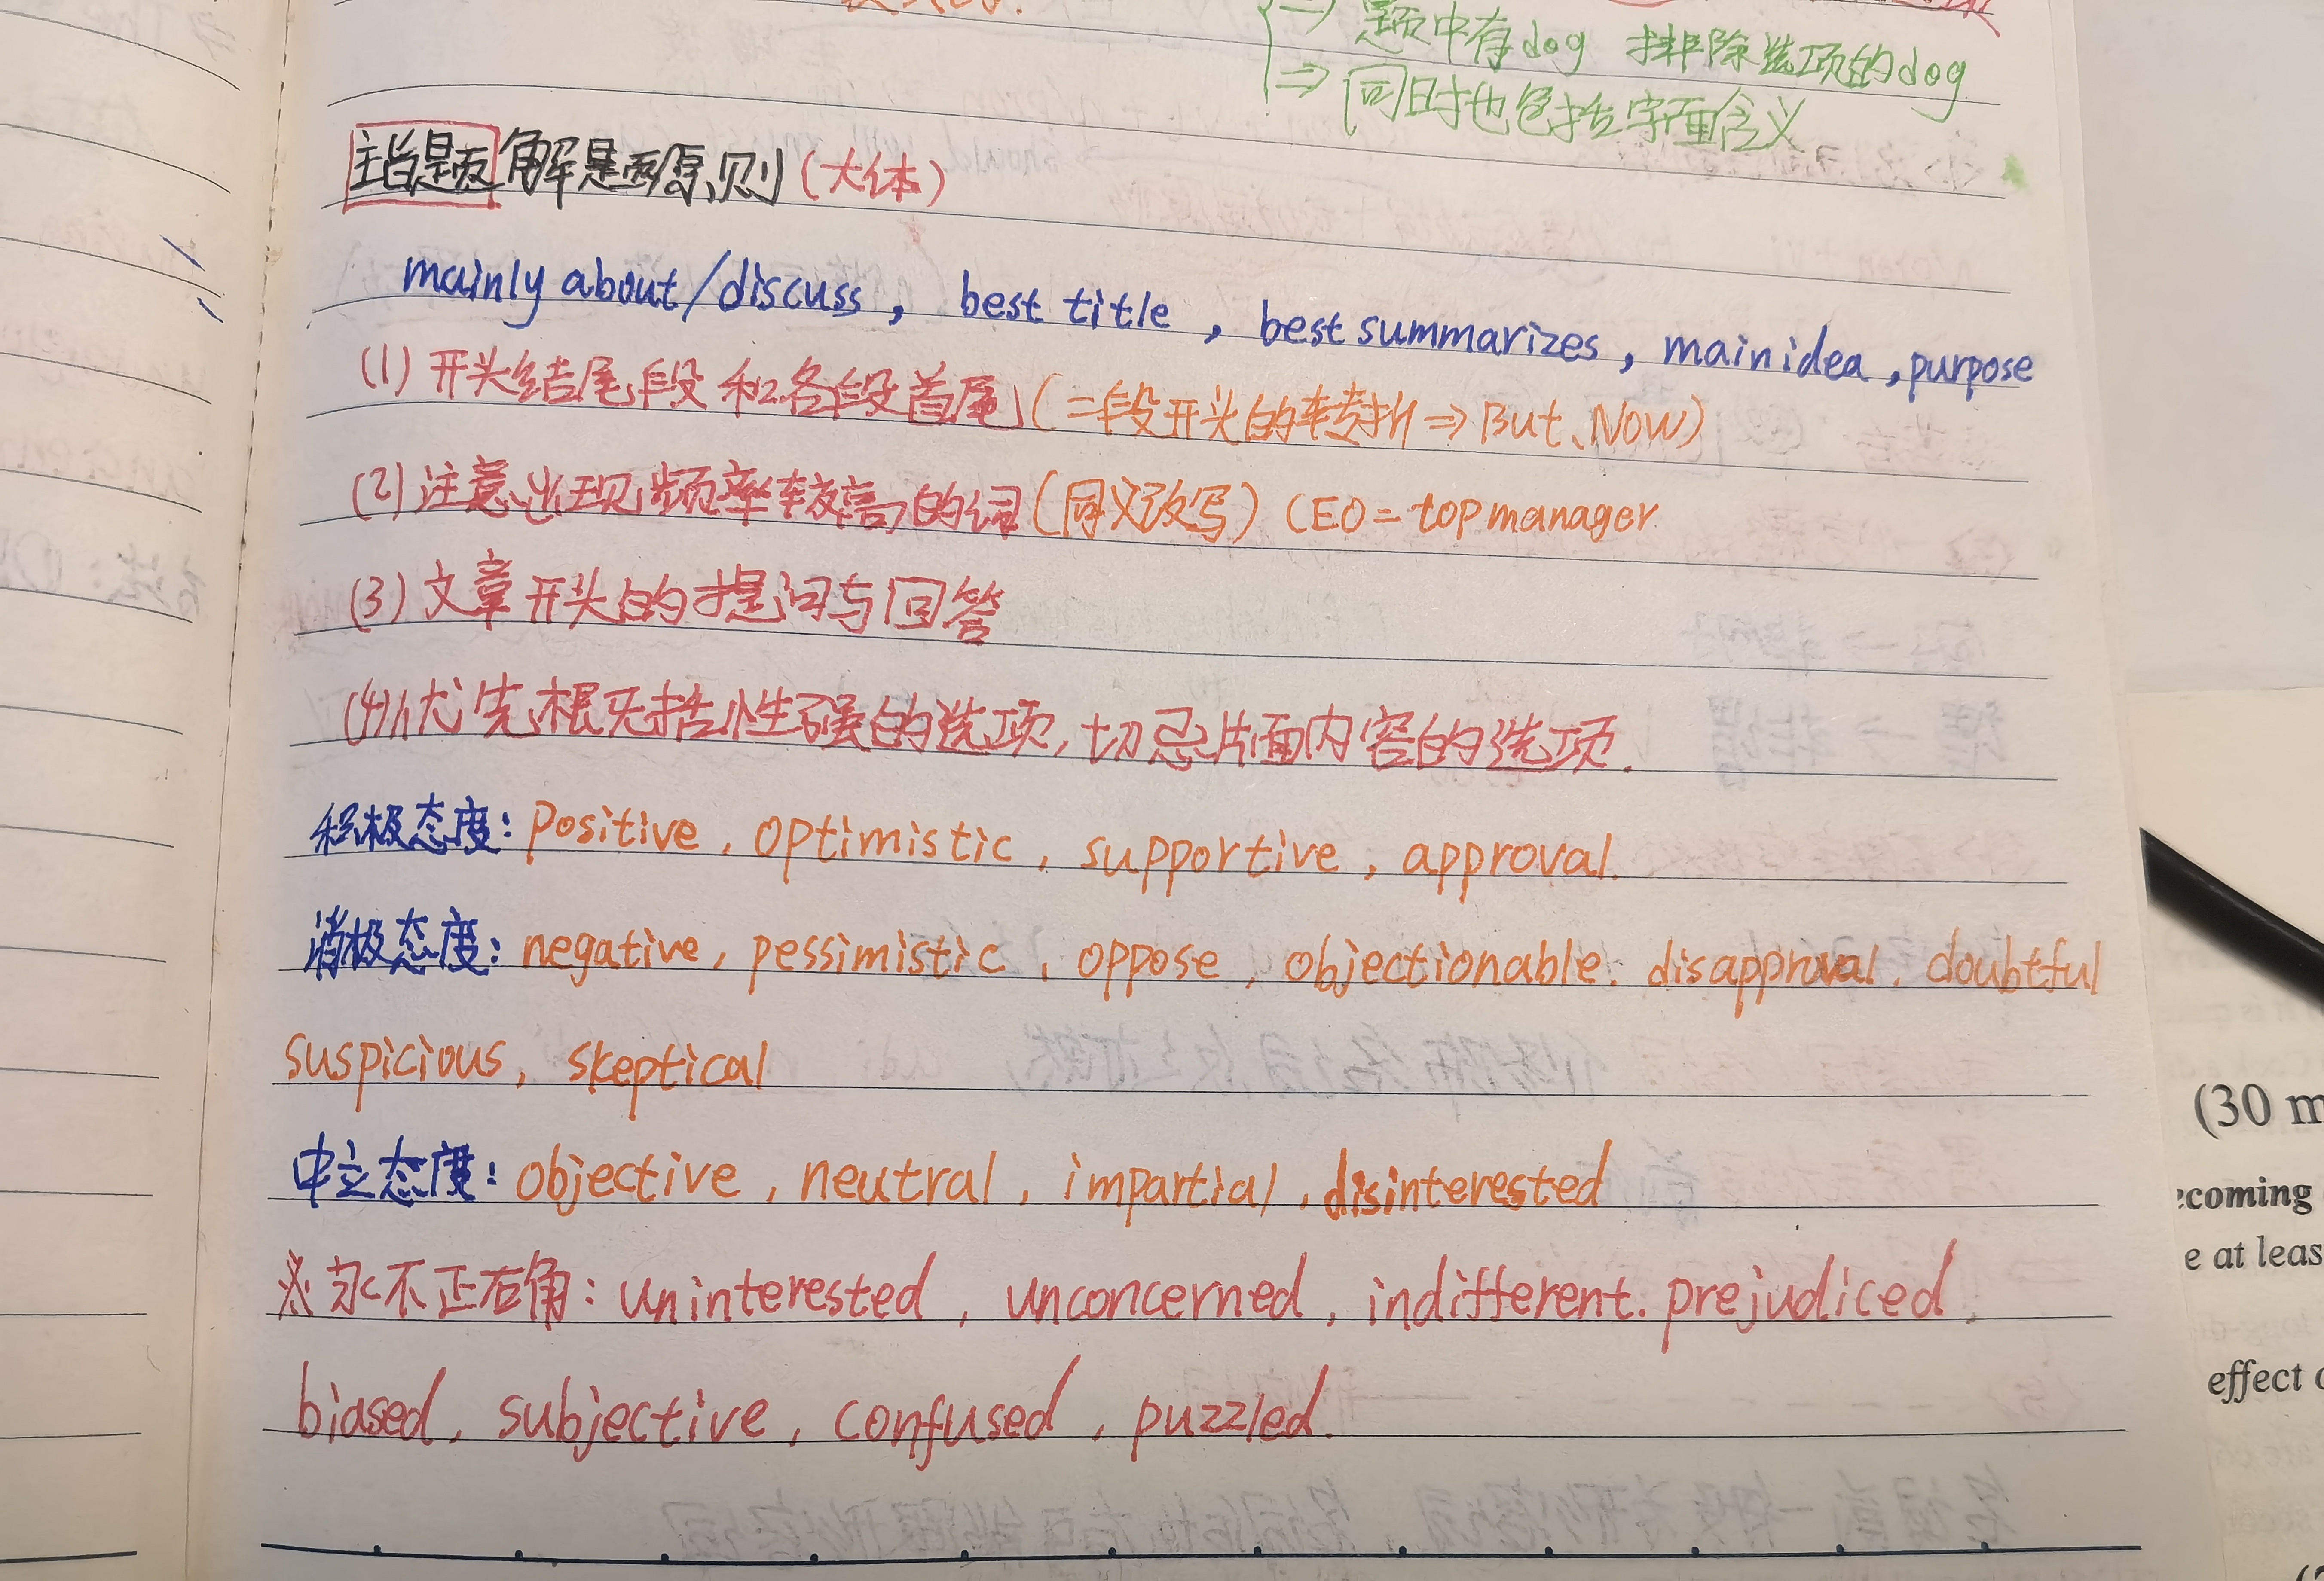 ⇒ 题中有dog 排除选项的dog
⇒ 同时也包括字面含义
主旨题解题原则(大体)
mainly about/discuss, best title, best summarizes, main idea, purpose
(1) 开头结尾段和各段首尾(二段开头的转折⇒But、Now)
(2) 注意出现频率较高的词(同义改写) CEO=top manager
(3) 文章开头的提问与回答
(4) 优先概括性强的选项,切忌片面内容的选项.
积极态度: positive, optimistic, supportive, approval.
消极态度: negative, pessimistic, oppose, objectionable. disapproval. doubtful
suspicious, skeptical
中立态度: objective, neutral, impartial, disinterested
※永不正确: uninterested, unconcerned, indifferent. prejudiced,
biased, subjective, confused, puzzled.
(30 m
ecoming
e at leas
effect